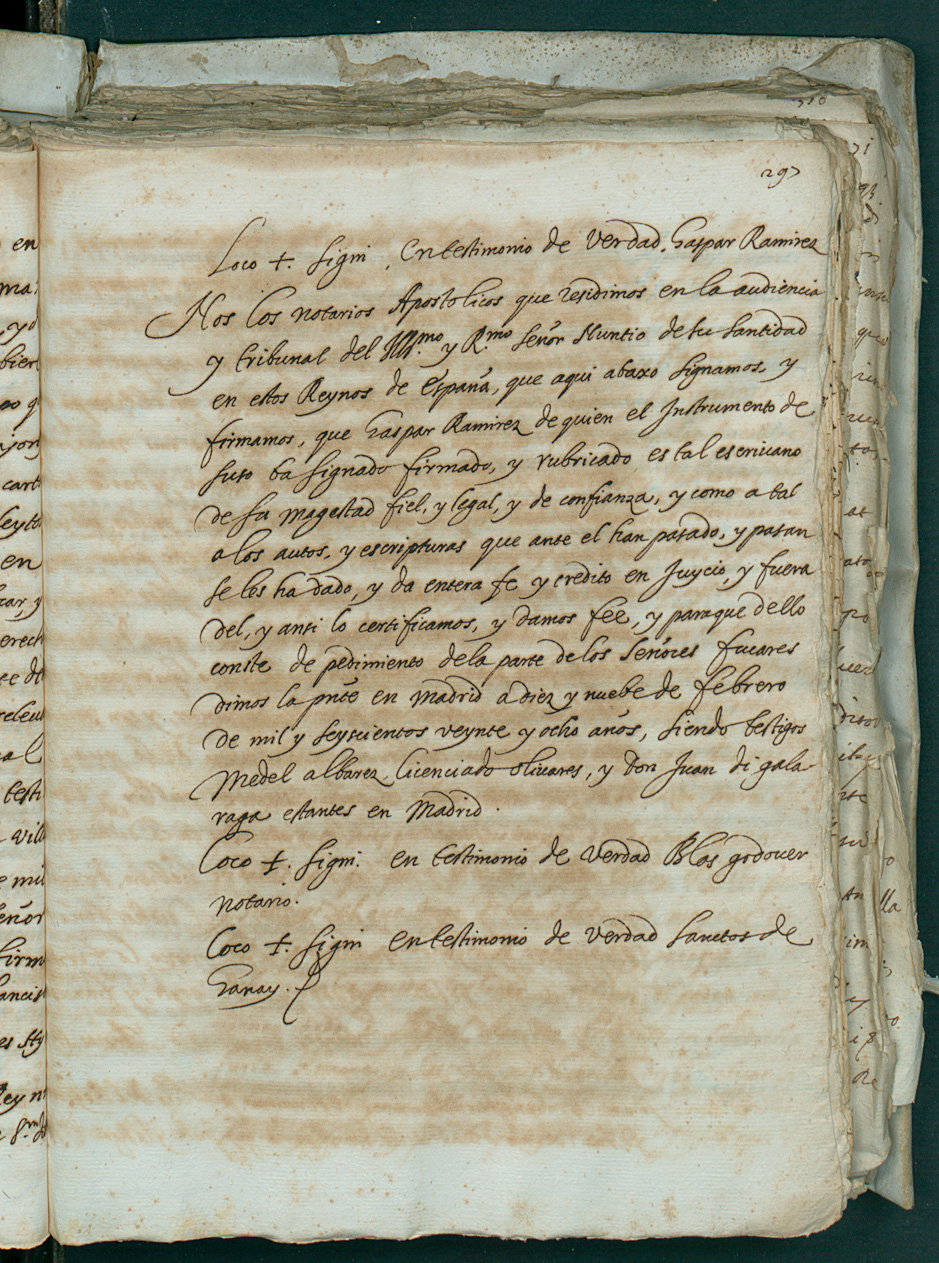 297
Loco +. signi. En testimonio de verdad. Gaspar Ramirez
Nos los notarios Apostolicos que residimos en la audiencia
y tribunal del Ill.mo y R.mo señor Nuntio de su santidad
en estos Reynos de españa, que aqui abaxo signamos, y
firmamos, que Gaspar Ramirez de quien el Instrumento de
suso ba signado firmado, y rubricado es tal escriuano
de su magestad fiel, y legal, y de confianza, y como a tal
a los autos, y escripturas que ante el han pasado, y pasan
se les ha dado, y da entera fe y credito en Juycio, y fuera
del, y ansi lo certificamos, y damos fee, y paraque dello
conste de pedimiento dela parte delos señores fucares
dimos la pnte en Madrid a diez y nuebe de febrero
de mil y seyscientos veynte y ocho años, siendo testigos
Medel albarez, licenciado oliuares, y Don Juan di gala
raga estantes en Madrid.
Loco +. signi. en testimonio de verdad Blas godouer
notario.
Loco +. signi en testimonio de verdad sanctos de
Garay.